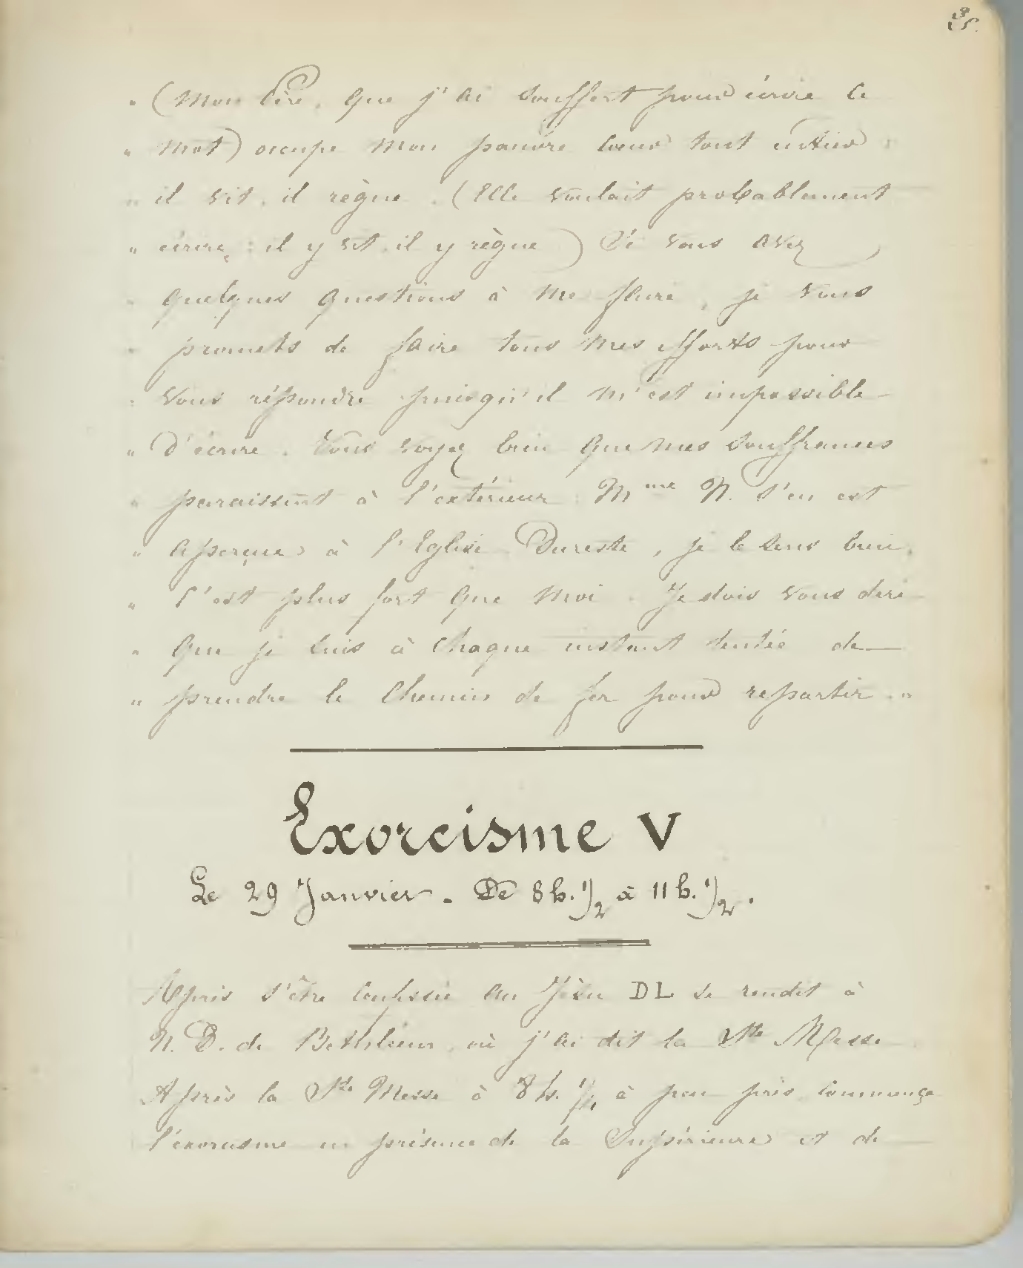 35.
" (Mon Père, que j'ai souffert pour écrire ce
" mot) occupe mon pauvre cœur tout entier :
" il vit, il règne. (Elle voulait probablement
" écrire : il y vit, il y règne) Si vous avez
" quelques questions à me faire, je vous
" promets de faire tous mes efforts pour
" vous répondre puisqu'il m'est impossible
" d'écrire. Vous voyez bien que mes souffrances
" paraissent à l'extérieur. Mme N. s'en est
" aperçue à l'Eglise. Dureste, je le sens bien,
" c'est plus fort que moi. Je dois vous dire
" que je suis à chaque instant tentée de
" prendre le chemin de fer pour repartir. "
Exorcisme V
Le 29 Janvier. De 8 h. 1/2 à 11 h. 1/2.
Après s'être confessée au Jésu DL se rendit à
N. D. de Bethléem, où j'ai dit la Ste Messe.
Après la Ste Messe à 8 h. 1/2 à peu près commença
l'exorcisme en présence de la Supérieure et de